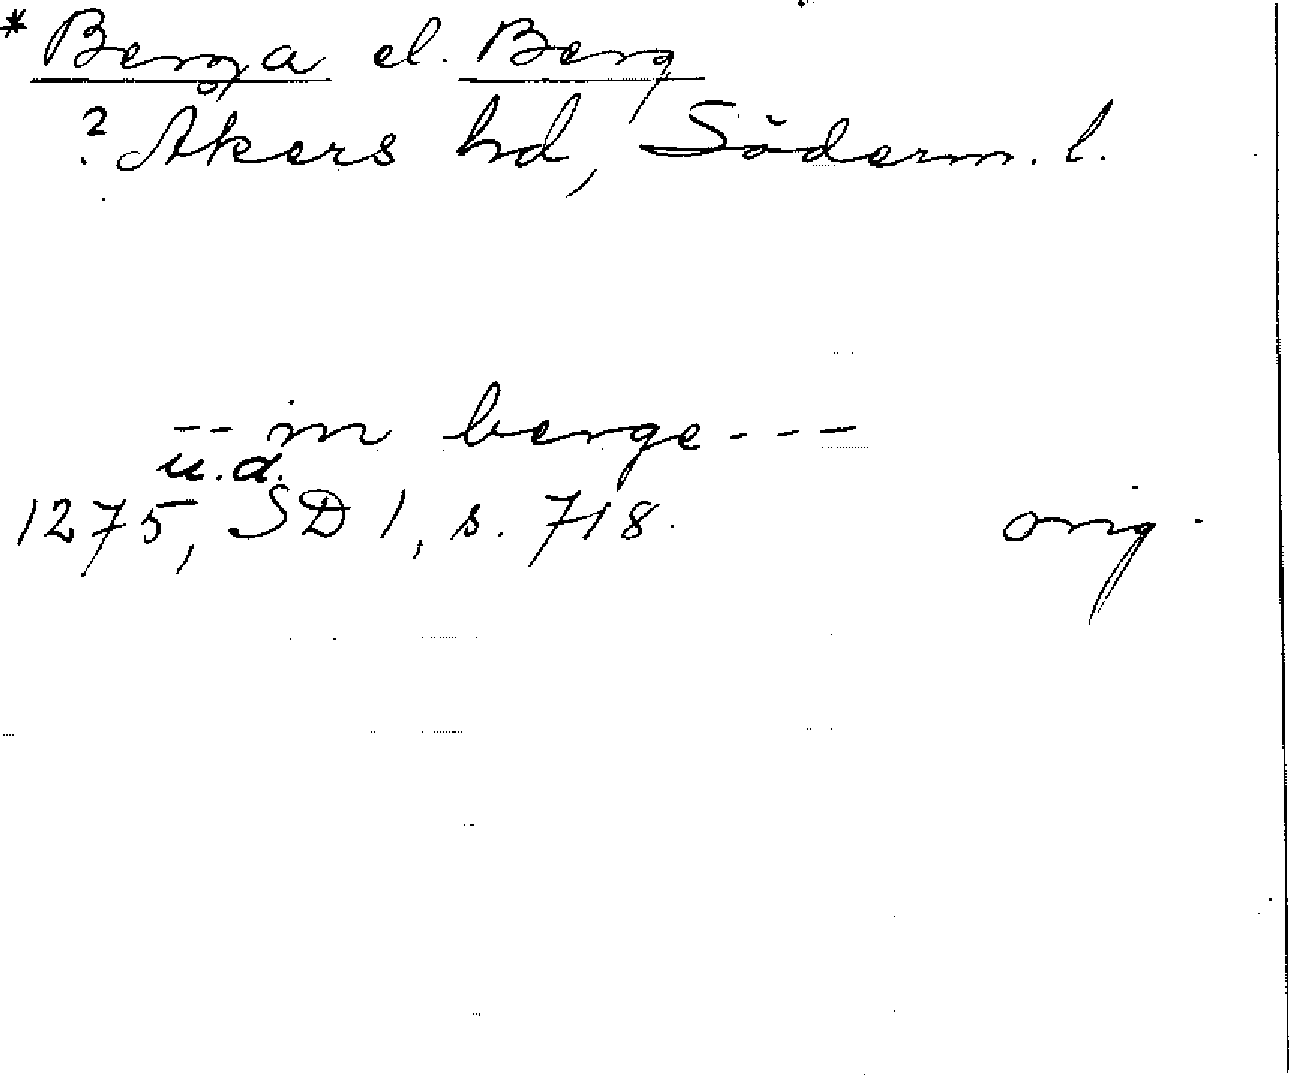 * Berga el. Berg
? Akers hd, Söderm. l.
-- in berge ---
u.d.
1275, SD 1, s. 718. orig.